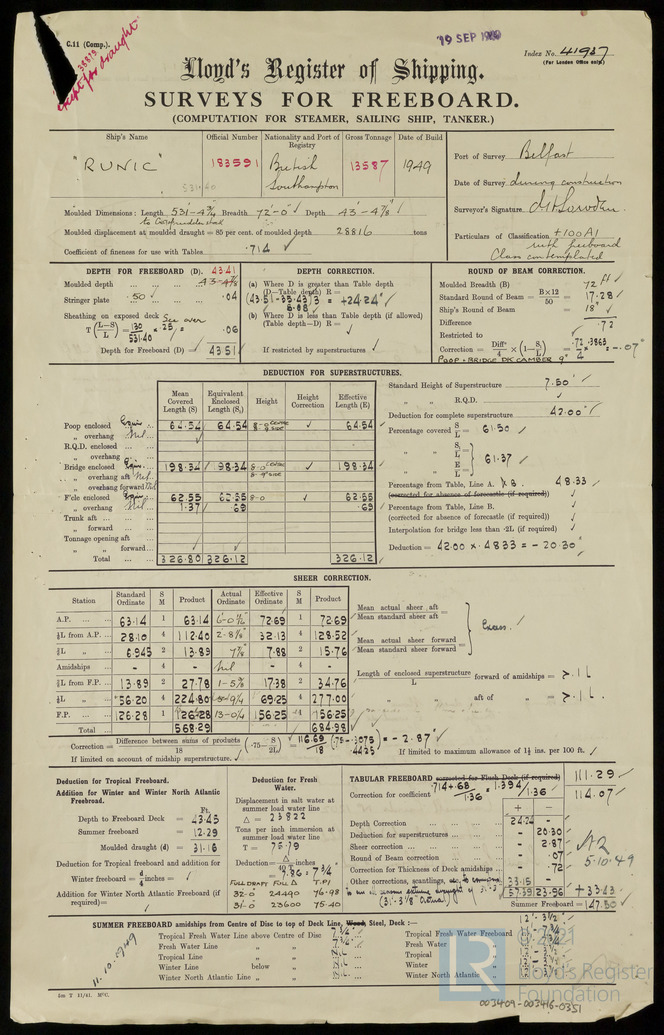 C.11 (Comp.).
38819
except for draught
19 SEP 19
Index No. 41957
(For London Office only)
Lloyd's Register of Shipping.
SURVEYS FOR FREEBOARD.
(COMPUTATION FOR STEAMER, SAILING SHIP, TANKER.)
Ship's Name
Official Number
Nationality and Port of Registry
Gross Tonnage
Date of Build
"RUNIC"
183591
British
Southampton
13587
1949
531.40
Port of Survey Belfast
Date of Survey during construction
Surveyor's Signature
Particulars of Classification +100A1
with freeboard
Class contemplated
Moulded Dimensions: Length 531'-4¾ Breadth 72'-0" Depth 43'-4⅞"
Moulded displacement at moulded draught = 85 per cent. of moulded depth 28816 tons
Coefficient of fineness for use with Tables .714
DEPTH FOR FREEBOARD (D).
43.41
Moulded depth 43-4⅞
Stringer plate .50 .04
Sheathing on exposed deck See over
T(L-S/L) = 130/531.40 × .25 = .06
Depth for Freeboard (D) = 43.51
DEPTH CORRECTION.
(a) Where D is greater than Table depth
(D-Table depth) R =
(43.51-35.43)3 = +24.24"
8.08
(b) Where D is less than Table depth (if allowed)
(Table depth-D) R =
If restricted by superstructures
ROUND OF BEAM CORRECTION.
Moulded Breadth (B) 72 ft
Standard Round of Beam = B×12/50 = 17.28
Ship's Round of Beam = 18"
Difference .72
Restricted to
Correction = Diff/4 × (1-S₁/L) = .72/4 .3863 = -.07"
POOP & BRIDGE DK CAMBER 9"
DEDUCTION FOR SUPERSTRUCTURES.
Mean Covered Length (S)
Equivalent Enclosed Length (S₁)
Height
Height Correction
Effective Length (E)
Poop enclosed 64.54 64.54 8-0 CENTRE 64.54
" overhang Nil
R.Q.D. enclosed
" overhang
Bridge enclosed 198.34 198.34 8-0 CENTRE 198.34
" overhang aft Nil
" overhang forward Nil
F'cle enclosed 62.55 62.55 8-0 62.55
" overhang 1.37 .69 .69
Trunk aft
" forward
Tonnage opening aft
" " forward
Total 326.80 326.12 326.12
Standard Height of Superstructure 7.50'
" " R.Q.D.
Deduction for complete superstructure 42.00"
Percentage covered S/L = 61.50
" " S₁/L =
" " E/L = 61.37
Percentage from Table, Line A. B 48.33
(corrected for absence of forecastle (if required))
Percentage from Table, Line B.
(corrected for absence of forecastle (if required))
Interpolation for bridge less than .2L (if required)
Deduction = 42.00 × .4833 = -20.30"
SHEER CORRECTION.
Station
Standard Ordinate
S M
Product
Actual Ordinate
Effective Ordinate
S M
Product
A.P. 63.14 1 63.14 6-0½" 72.69 1 72.69
⅙L from A.P. 28.10 4 112.40 2-8⅛" 32.13 4 128.52
⅓L " 6.945 2 13.89 7⅞" 7.88 2 15.76
Amidships - 4 - Nil - 4 -
⅓L from F.P. 13.89 2 27.78 1-5⅜ 17.38 2 34.76
⅙L " 56.20 4 224.80 5-9¼ 69.25 4 277.00
F.P. 126.28 1 126.28 13-0¼ 156.25 1 156.25
Total 568.29 684.98
Mean actual sheer aft =
Mean standard sheer aft
Mean actual sheer forward =
Mean standard sheer forward
Excess.
Length of enclosed superstructure forward of amidships = > .1L
L
" " aft of " = > .1L
Correction = Difference between sums of products/18 (.75-S/2L) = 116.69/18 (.75-.3075) = -2.87"
.4425
If limited on account of midship superstructure.
If limited to maximum allowance of 1½ ins. per 100 ft.
Deduction for Tropical Freeboard.
Addition for Winter and Winter North Atlantic Freeboard.
Ft.
Depth to Freeboard Deck = 43.45
Summer freeboard = 12.29
Moulded draught (d) = 31.16
Deduction for Tropical freeboard and addition for
Winter freeboard = d/4 inches =
Addition for Winter North Atlantic Freeboard (if required) =
Deduction for Fresh Water.
Displacement in salt water at summer load water line
Δ = 23822
Tons per inch immersion at summer load water line
T = 75.79
Deduction = Δ/40T inches
= 7.86 = 7¾
FULL DRAFT FULL Δ T.P.I
32-0 24490 76-98
31-0 23600 75-40
TABULAR FREEBOARD corrected for Flush Deck (if required) 111.29
Correction for coefficient .714+.68/1.36 = 1.394/1.36 114.07
+ -
Depth Correction 24.24 -
Deduction for superstructures - 20.30
Sheer correction - 2.87
Round of Beam correction - .07
Correction for Thickness of Deck amidships - .72
Other correction, scantlings, etc. 33.15
(31'-3⅞" actual)
57.39 23.96 +33.43
Summer Freeboard = 147.50
5.10.49
SUMMER FREEBOARD amidships from Centre of Disc to top of Deck Line, Wood, Steel, Deck :—
12'-3½"
Tropical Fresh Water Line above Centre of Disc 7¾"
Fresh Water Line " " 7¾"
Tropical Line " "
Winter Line below "
Winter North Atlantic Line " "
Tropical Fresh Water Freeboard
Fresh Water "
Tropical "
Winter "
Winter North Atlantic "
11.10.1949
5m T 11/41. MᶜC.
© 2021
LR
Lloyd's Register
Foundation
003409-003416-0351